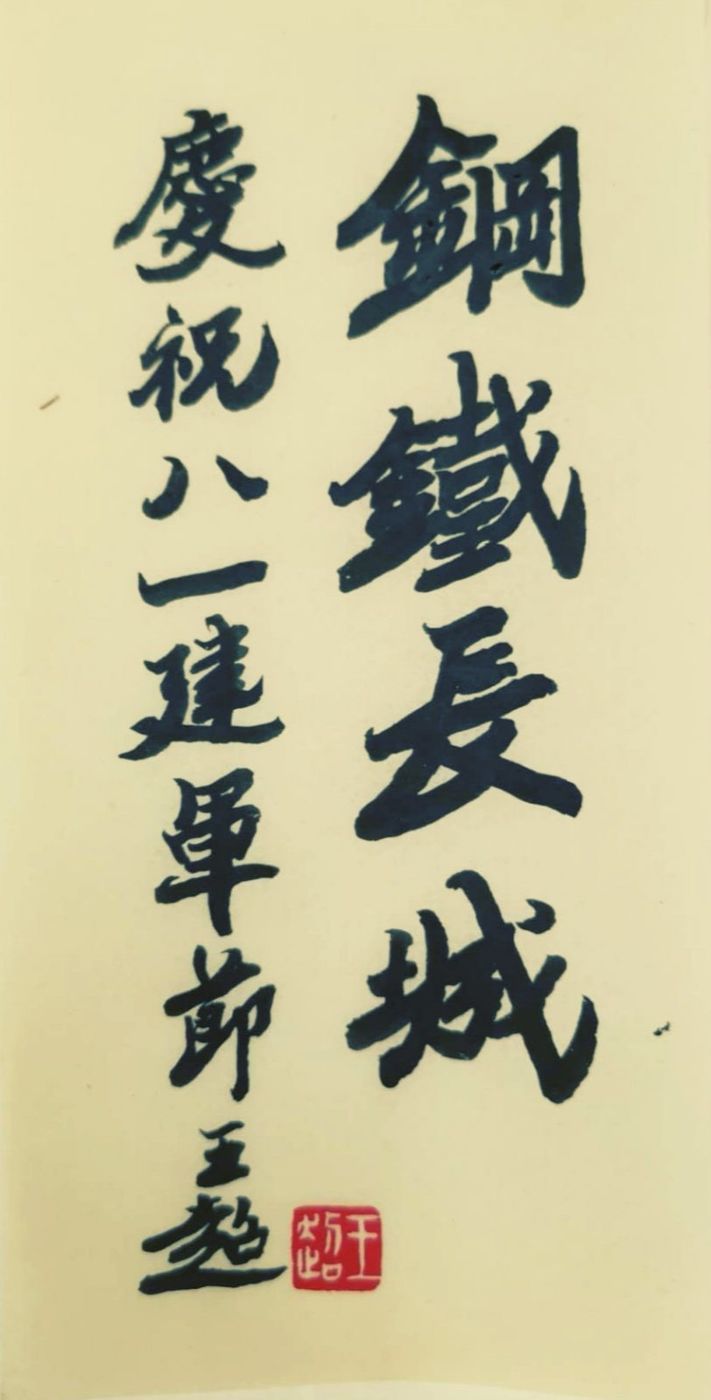 鋼鐵長城
慶祝八一建軍節 王超
王超